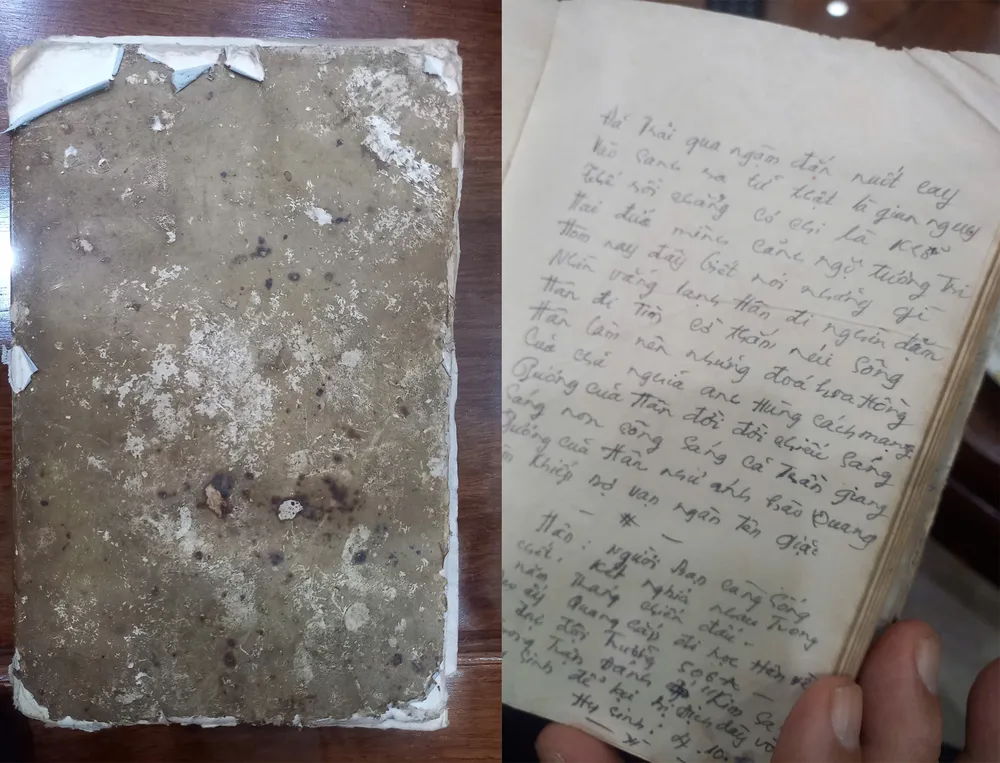 Đã Trải qua ngậm đắn nuốt cay
Vào sanh ra tử thật là gian nguy
Thế rồi chẳng có chi là khổ
Hai đứa mình cảnh ngộ tương tri
Hôm nay đây biết nói những gì
Nhìn vầng tranh Hân đi nghìn dặm
Hân đi Tìm cỏ thắm núi sông
Hân làm nên những đoá hoa Hồng
Của chủ nghĩa anh Hùng cách mạng
Gương của Hân đời đời chiếu sáng
Sáng non sông sáng cả Trần gian
Gương của Hân như ánh hào Quang
khiếp sợ vạn ngàn tên giặc
- * -
Hân: người bạn cùng sống
chết: kết nghĩa nhau Trong
năm Thang chiến đấu
Quang cấp đi học Hân về
đội Trưởng 506-A -
Trận Đánh "Kim
sinh để lại bị địch
Hy sinh: 4.10.
- * -